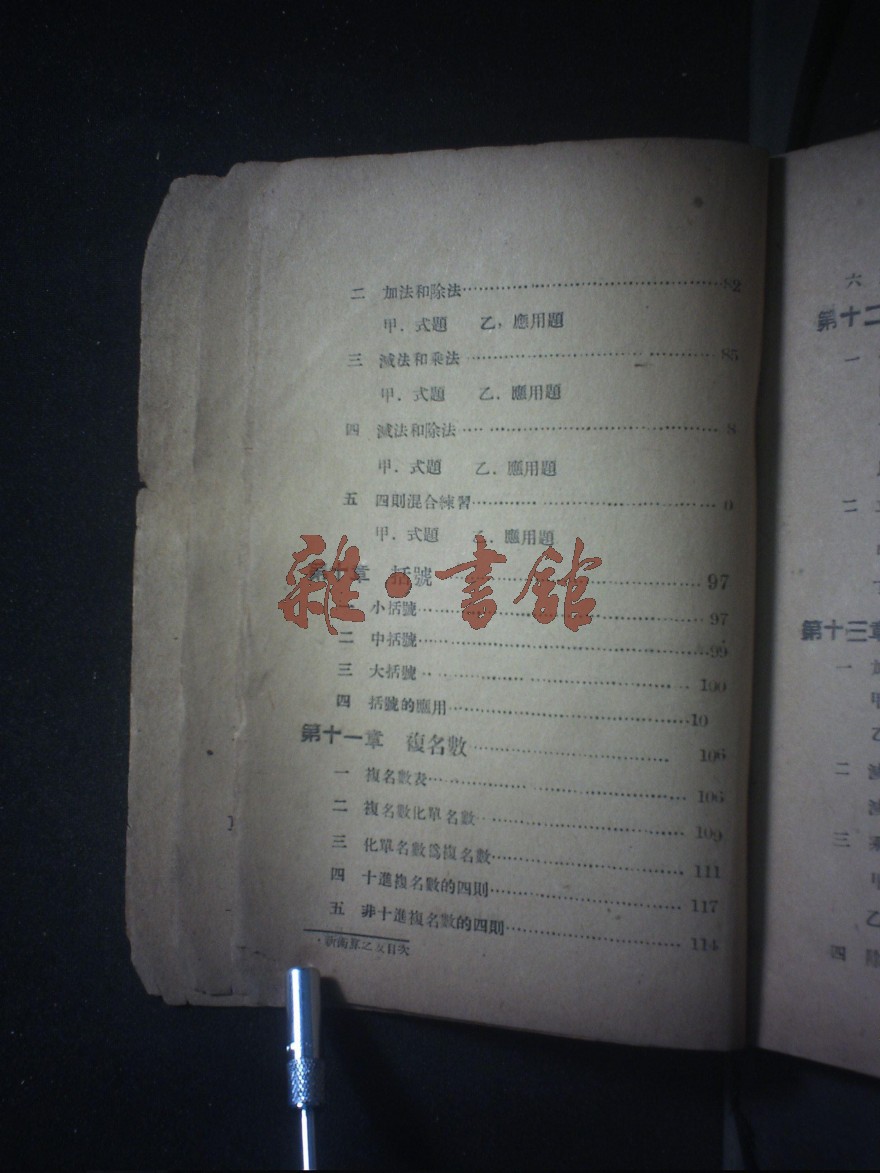 二　加法和除法……82
甲．式題　　乙．應用題
三　減法和乘法……85
甲．式題　　乙．應用題
四　減法和除法……8
甲．式題　　乙．應用題
五　四則混合練習……9
甲．式題　　乙．應用題
第十章　括號……97
一　小括號……97
二　中括號……99
三　大括號……100
四　括號的應用……10
第十一章　複名數……106
一　複名數表……106
二　複名數化單名數……109
三　化單名數爲複名數……111
四　十進複名數的四則……117
五　非十進複名數的四則……114
新高算之友目次
雜・書館
六
第十二
一
二
第十三章
一　加
甲
乙
二　減
減
三　乘
甲
乙
四　除